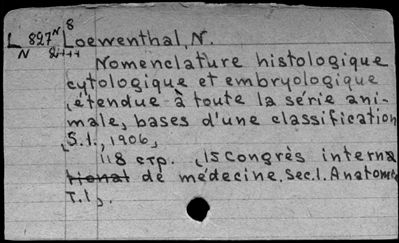 L 827N8 Loewenthal, N.
N
Nomenclature histologique
cytologique et embryologique
,étendue à toute la série ani-
male, bases d'une classification
,S.l., 1906,
118 стр. ,15 Congrès interna
tional de médecine. Sec.I. Anatomie
T.I,.